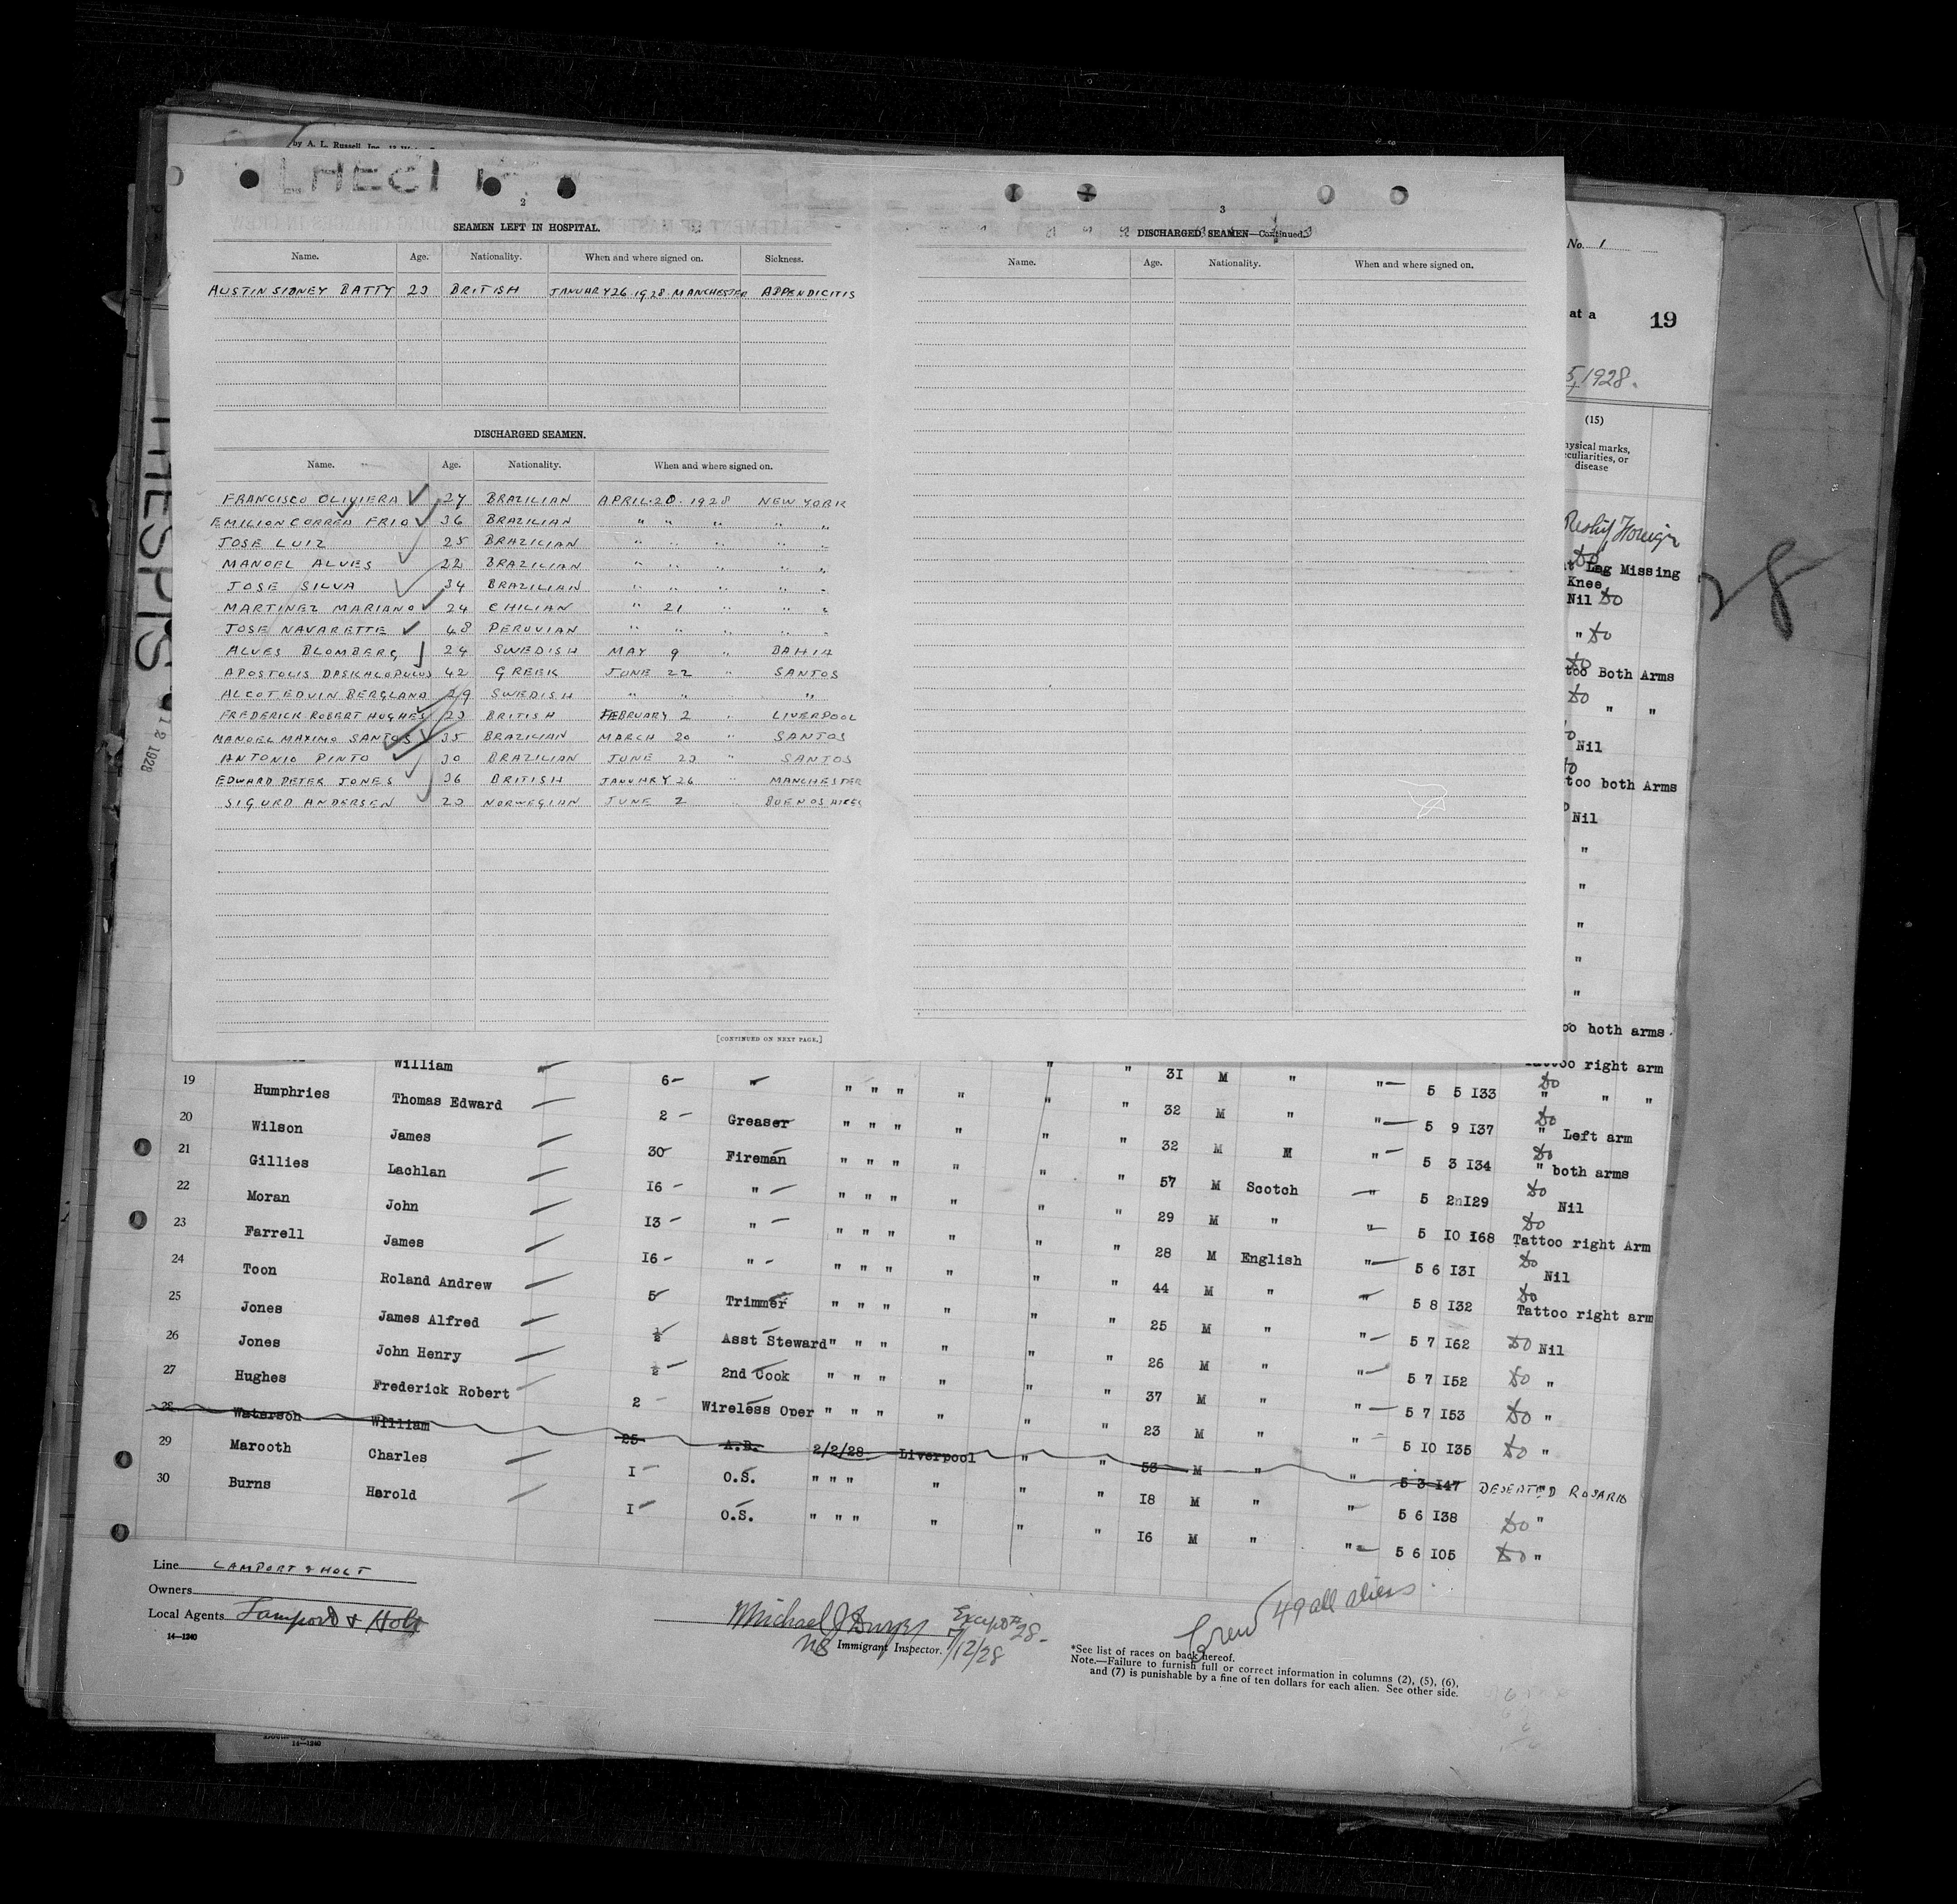 by A. L. Russell, Inc.
2
SEAMEN LEFT IN HOSPITAL.
Name. Age. Nationality. When and where signed on. Sickness.
AUSTIN SIDNEY BATTY 23 BRITISH JANUARY 26.1928.MANCHESTER APPENDICITIS
DISCHARGED SEAMEN.
Name. Age. Nationality. When and where signed on.
FRANCISCO OLIVIERA 27 BRAZILIAN APRIL.20.1928 NEW YORK
EMILION CORREA FRIO 36 BRAZILIAN " " " " "
JOSE LUIZ 25 BRAZILIAN " " " " "
MANOEL ALVES 22 BRAZILIAN " " " " "
JOSE SILVA 34 BRAZILIAN " " " " "
MARTINEZ MARIANO 24 CHILIAN " 21 " " "
JOSE NAVARETTE 48 PERUVIAN " " " " "
ALVES BLOMBERG 24 SWEDISH MAY 9 " BAHIA
APOSTOLIS DASKALOPULOS 42 GREEK JUNE 22 " SANTOS
ALCOT EDVIN BERGLAND 29 SWEDISH " " "
FREDERICK ROBERT HUGHES 23 BRITISH FEBRUARY 2 " LIVERPOOL
MANOEL MAXIMO SANTOS 35 BRAZILIAN MARCH 20 " SANTOS
ANTONIO PINTO 30 BRAZILIAN JUNE 23 " SANTOS
EDWARD PETER JONES 36 BRITISH JANUARY 26 " MANCHESTER
SIGURD ANDERSEN 23 NORWEGIAN JUNE 2 " BUENOS AIRES
[CONTINUED ON NEXT PAGE.]
3
DISCHARGED SEAMEN—Continued.
Name. Age. Nationality. When and where signed on.
No. 1
at a 19
5, 1928.
(15)
THESPIS
12 1928
28
Leg Missing
Knee
Nil Do
" Do
Both Arms
Do
" "
Nil
both Arms
Nil
"
"
"
"
"
both arms
William 6 " " " " " " " 31 M " " 5 5 133 Tattoo right arm
19 Humphries Thomas Edward 2 Greaser " " " " " " 32 M " " 5 9 137 Do " " "
20 Wilson James 30 Fireman " " " " " " 32 M M " 5 3 134 Do " Left arm
21 Gillies Lachlan 16 " " " " " " " 57 M Scotch " 5 2 129 Do " both arms
22 Moran John 13 " " " " " " " 29 M " " 5 10 168 Do Nil
23 Farrell James 16 " " " " " " " 28 M English " 5 6 131 Do Tattoo right Arm
24 Toon Roland Andrew 5 Trimmer " " " " " " 44 M " " 5 8 132 Do Nil
25 Jones James Alfred ½ Asst Steward " " " " " " 25 M " " 5 7 162 Do Tattoo right arm
26 Jones John Henry ½ 2nd Cook " " " " " " 26 M " " 5 7 152 Do Nil
27 Hughes Frederick Robert 2 Wireless Oper " " " " " " 37 M " " 5 7 153 Do "
23 M " " 5 10 135 Do "
28 Waterson William 25 A.B. 2/2/28 Liverpool " " 53 M " " 5 3 147 DESERTED ROSARIO
29 Marooth Charles 1 O.S. " " " " " " 18 M " " 5 6 138 Do "
30 Burns Harold 1 O.S. " " " " " " 16 M " " 5 6 105 Do "
Line LAMPORT & HOLT
Owners
Local Agents Lamport & Holt
14—1240
Immigrant Inspector.
7/12/28
Crew 49 all aliens
*See list of races on back hereof.
Note.—Failure to furnish full or correct information in columns (2), (5), (6),
and (7) is punishable by a fine of ten dollars for each alien. See other side.
14—1240